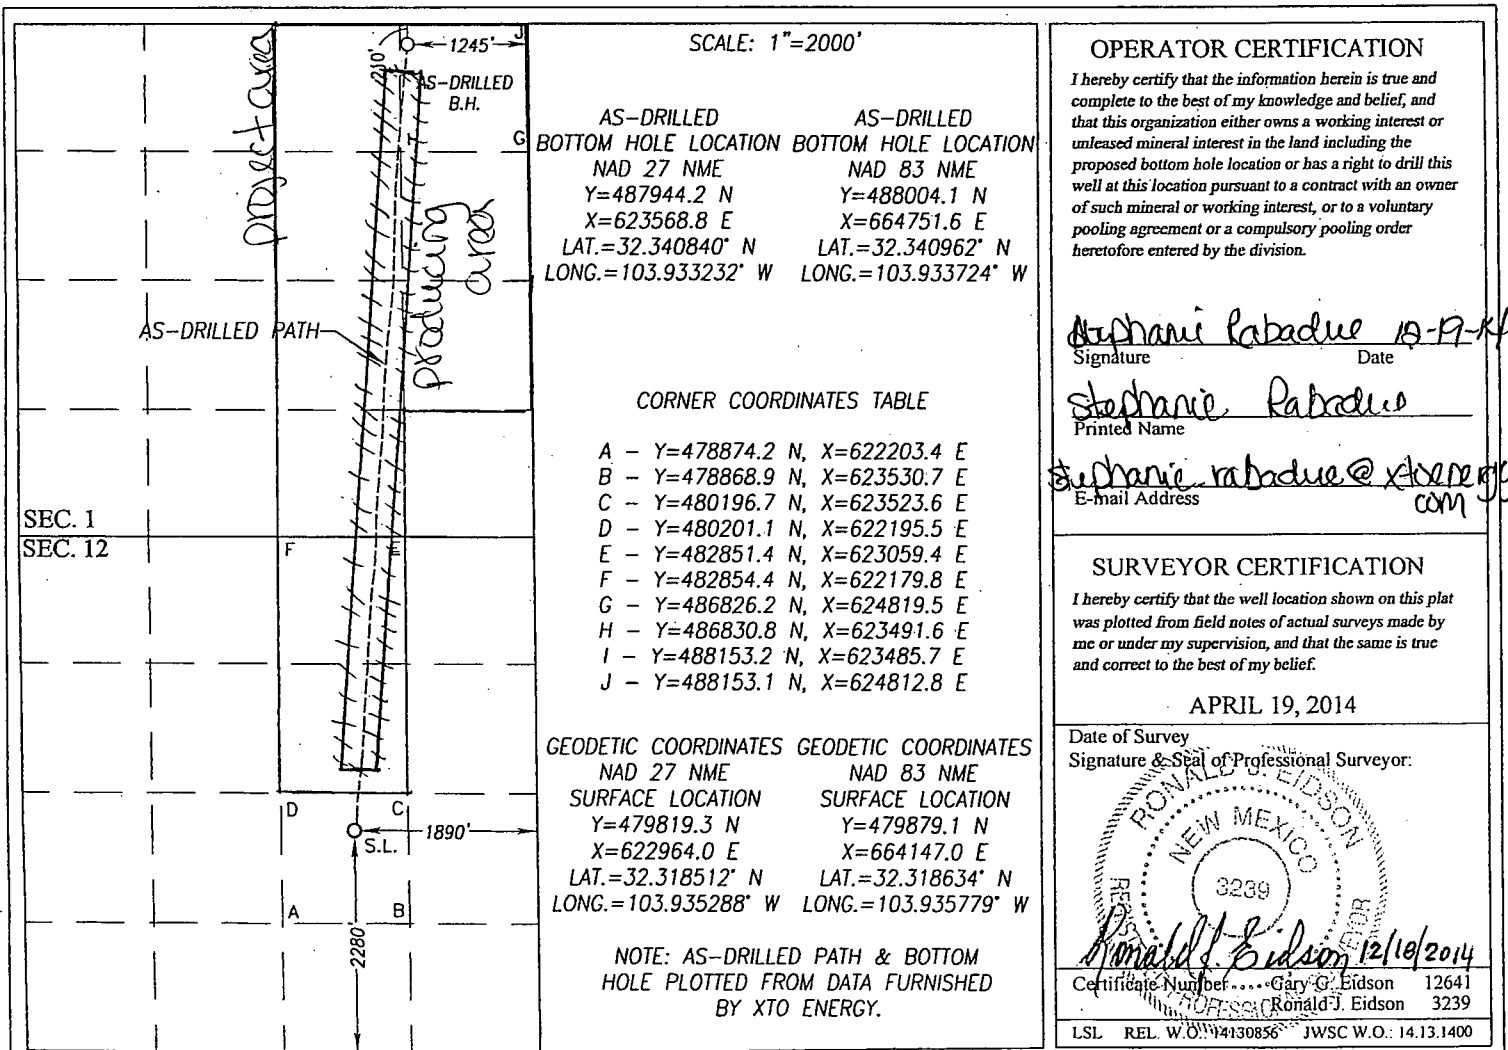 project area
210'
1245'
J
AS-DRILLED
B.H.
I
G
producing
area
AS-DRILLED PATH
SEC. 1
SEC. 12
F
E
D
C
S.L.
1890'
A
B
2280'
SCALE: 1"=2000'
AS-DRILLED
BOTTOM HOLE LOCATION
NAD 27 NME
Y=487944.2 N
X=623568.8 E
LAT.=32.340840° N
LONG.=103.933232° W
AS-DRILLED
BOTTOM HOLE LOCATION
NAD 83 NME
Y=488004.1 N
X=664751.6 E
LAT.=32.340962° N
LONG.=103.933724° W
CORNER COORDINATES TABLE
A - Y=478874.2 N, X=622203.4 E
B - Y=478868.9 N, X=623530.7 E
C - Y=480196.7 N, X=623523.6 E
D - Y=480201.1 N, X=622195.5 E
E - Y=482851.4 N, X=623059.4 E
F - Y=482854.4 N, X=622179.8 E
G - Y=486826.2 N, X=624819.5 E
H - Y=486830.8 N, X=623491.6 E
I - Y=488153.2 N, X=623485.7 E
J - Y=488153.1 N, X=624812.8 E
GEODETIC COORDINATES
NAD 27 NME
SURFACE LOCATION
Y=479819.3 N
X=622964.0 E
LAT.=32.318512° N
LONG.=103.935288° W
GEODETIC COORDINATES
NAD 83 NME
SURFACE LOCATION
Y=479879.1 N
X=664147.0 E
LAT.=32.318634° N
LONG.=103.935779° W
NOTE: AS-DRILLED PATH & BOTTOM
HOLE PLOTTED FROM DATA FURNISHED
BY XTO ENERGY.
OPERATOR CERTIFICATION
I hereby certify that the information herein is true and
complete to the best of my knowledge and belief, and
that this organization either owns a working interest or
unleased mineral interest in the land including the
proposed bottom hole location or has a right to drill this
well at this location pursuant to a contract with an owner
of such mineral or working interest, or to a voluntary
pooling agreement or a compulsory pooling order
heretofore entered by the division.
Stephanie Rabadue 12-19-14
Signature Date
Stephanie Rabadue
Printed Name
stephanie_rabadue@xtoenergy.
com
E-mail Address
SURVEYOR CERTIFICATION
I hereby certify that the well location shown on this plat
was plotted from field notes of actual surveys made by
me or under my supervision, and that the same is true
and correct to the best of my belief.
APRIL 19, 2014
Date of Survey
Signature & Seal of Professional Surveyor:
RONALD J. EIDSON
NEW MEXICO
3239
REGISTERED PROFESSIONAL SURVEYOR
Ronald J. Eidson 12/18/2014
Certificate Number Gary G. Eidson 12641
Ronald J. Eidson 3239
LSL REL. W.O.: 14130856 JWSC W.O.: 14.13.1400